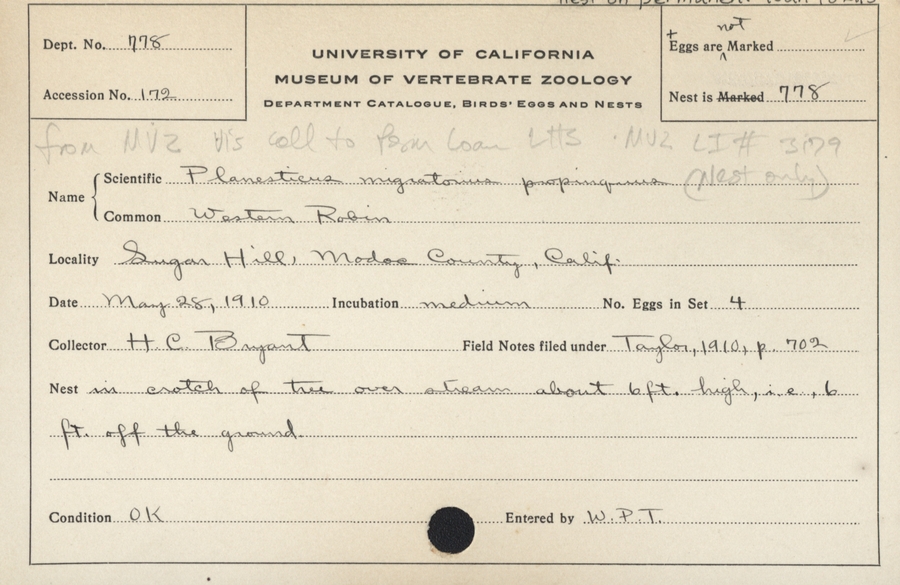 Nest on permanent loan to LHS
Dept. No. 778
Accession No. 172
UNIVERSITY OF CALIFORNIA
MUSEUM OF VERTEBRATE ZOOLOGY
DEPARTMENT CATALOGUE, BIRDS' EGGS AND NESTS
+ Eggs are not Marked
Nest is Marked 778
from MVZ coll to Perm Loan LHS MVZ LI# 3179
Name Scientific Planesticus migratorius propinquus (Nest only)
Common Western Robin
Locality Sugar Hill, Modoc County, Calif.
Date May 28, 1910 Incubation medium No. Eggs in Set 4
Collector H. C. Bryant Field Notes filed under Taylor, 1910, p. 702
Nest in crotch of tree over stream about 6 ft. high, i.e., 6
ft. off the ground.
Condition OK Entered by W.P.T.